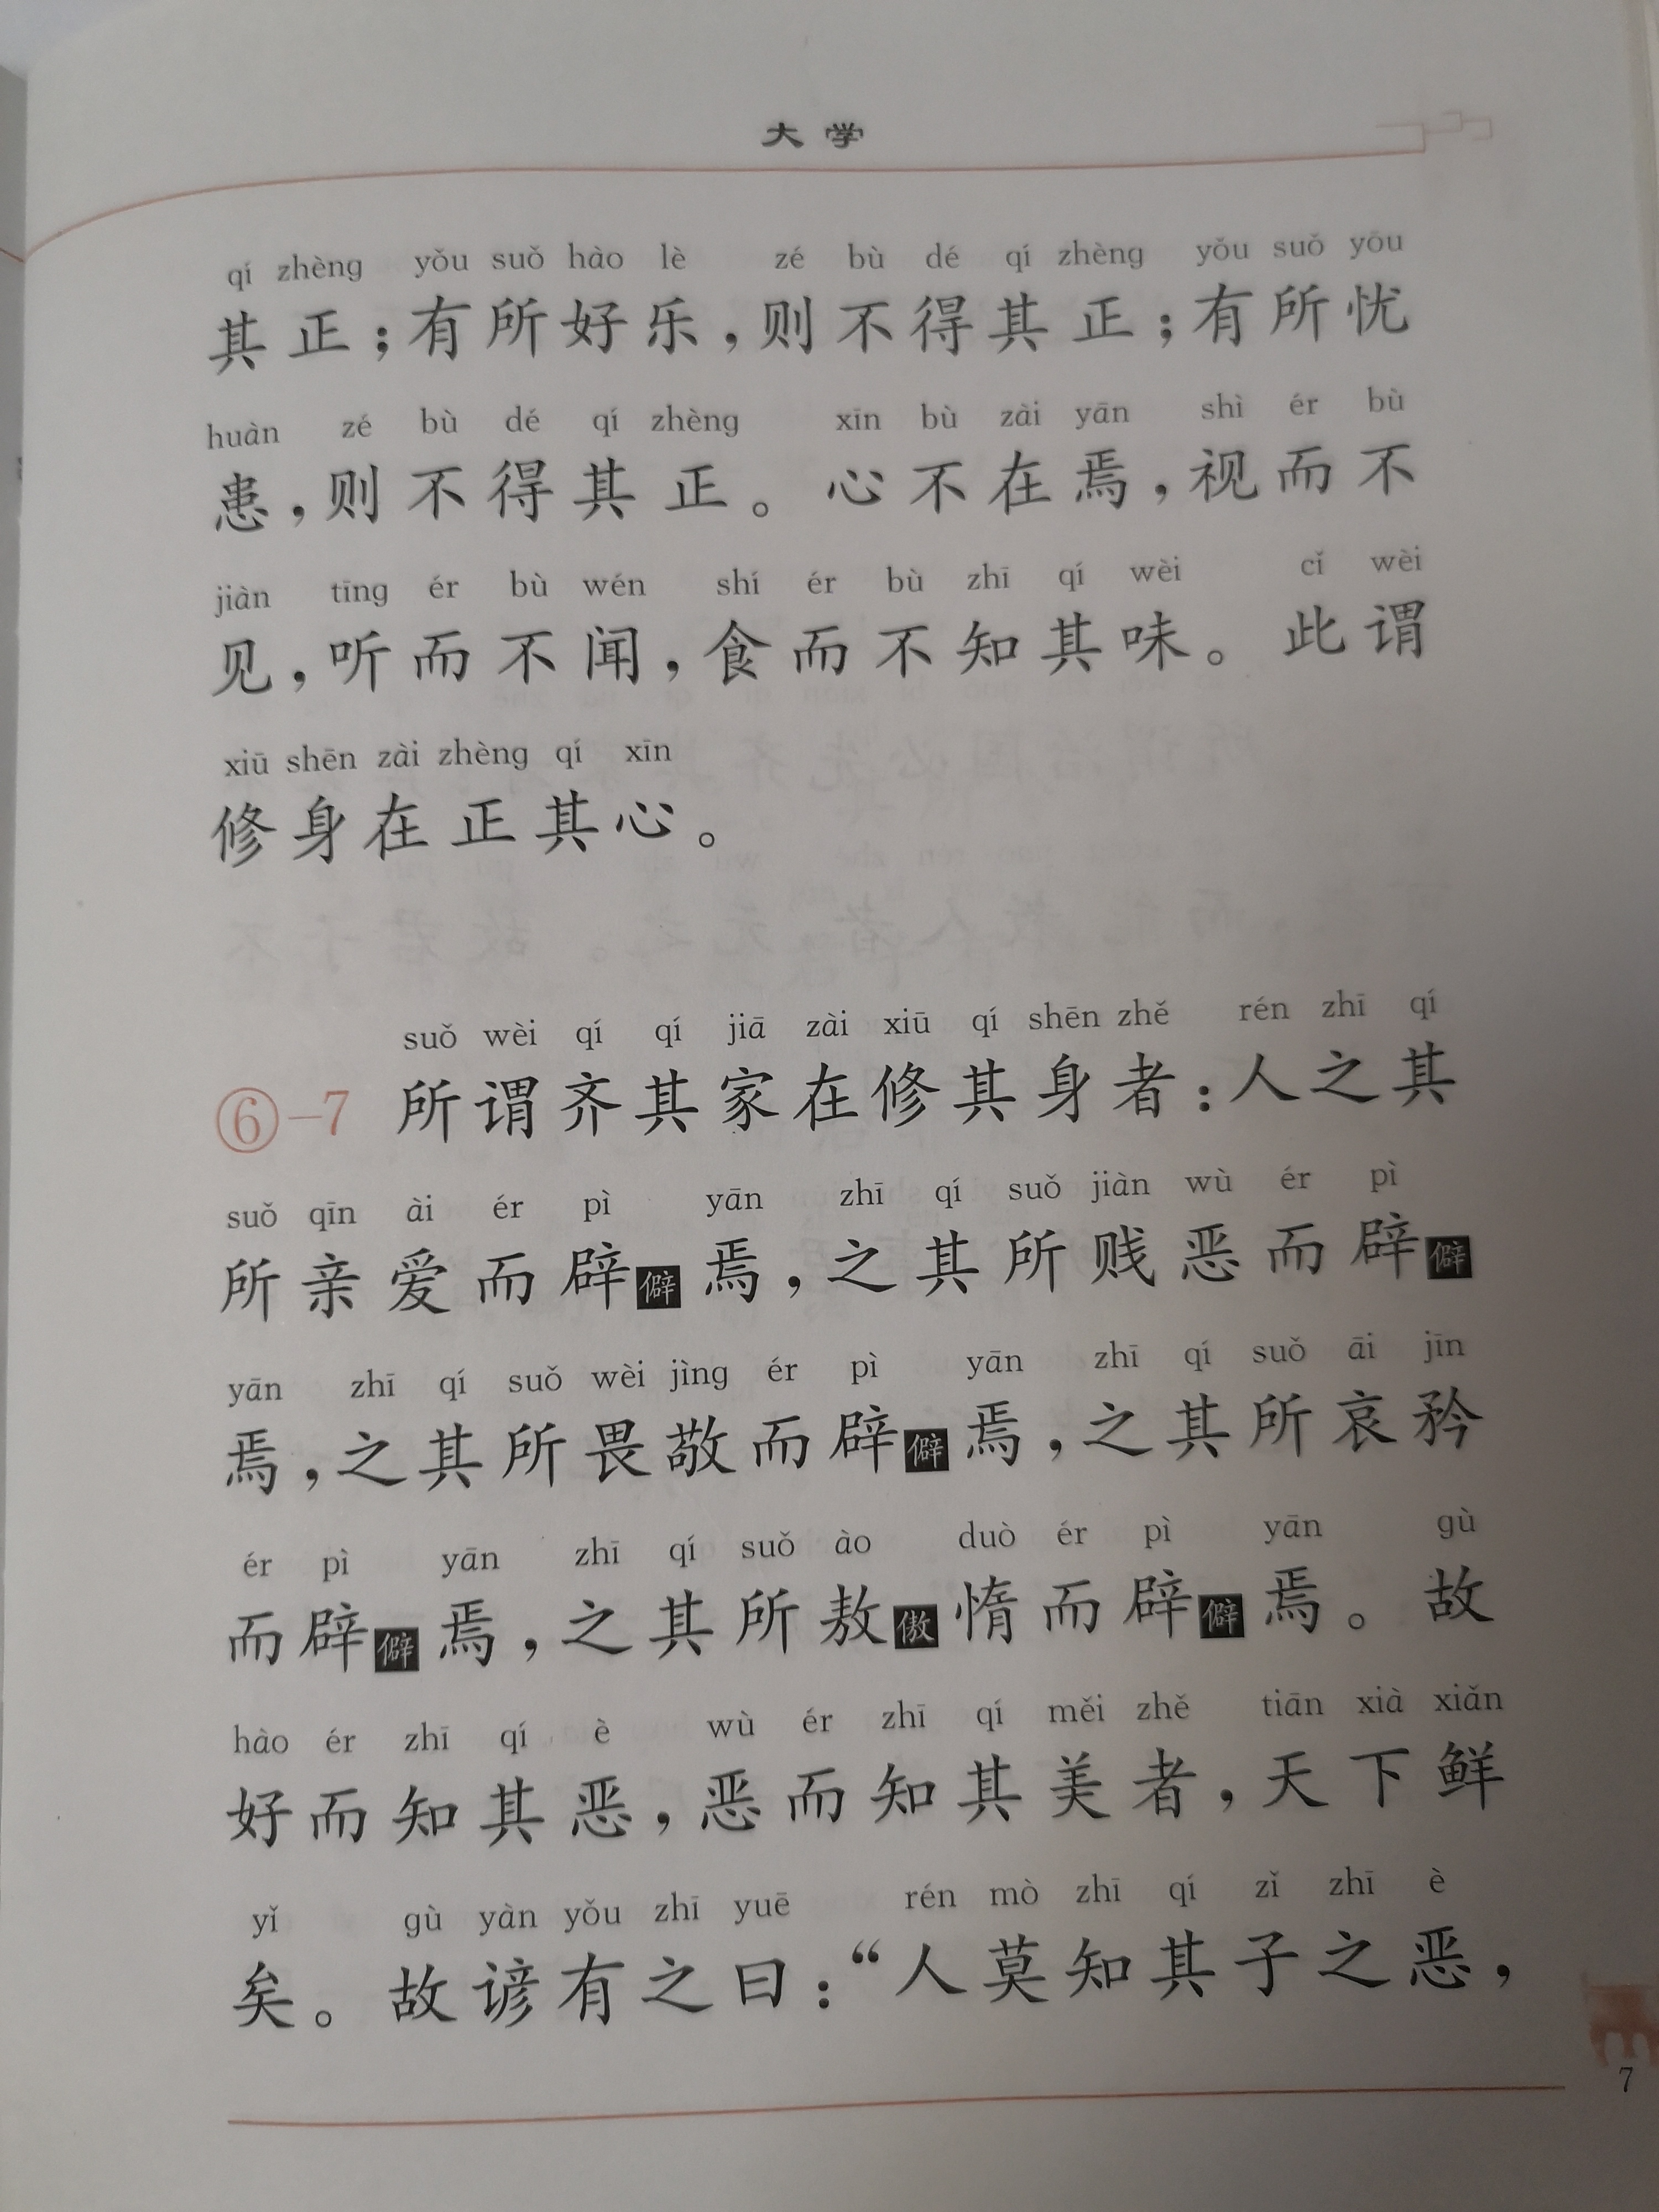 大学
qí zhèng yǒu suǒ hào lè zé bù dé qí zhèng yǒu suǒ yōu
其正；有所好乐，则不得其正；有所忧
huàn zé bù dé qí zhèng xīn bù zài yān shì ér bù
患，则不得其正。心不在焉，视而不
jiàn tīng ér bù wén shí ér bù zhī qí wèi cǐ wèi
见，听而不闻，食而不知其味。此谓
xiū shēn zài zhèng qí xīn
修身在正其心。
suǒ wèi qí qí jiā zài xiū qí shēn zhě rén zhī qí
⑥-7 所谓齐其家在修其身者：人之其
suǒ qīn ài ér pì yān zhī qí suǒ jiàn wù ér pì
所亲爱而辟僻焉，之其所贱恶而辟僻
yān zhī qí suǒ wèi jìng ér pì yān zhī qí suǒ āi jīn
焉，之其所畏敬而辟僻焉，之其所哀矜
ér pì yān zhī qí suǒ ào duò ér pì yān gù
而辟僻焉，之其所敖傲惰而辟僻焉。故
hào ér zhī qí è wù ér zhī qí měi zhě tiān xià xiǎn
好而知其恶，恶而知其美者，天下鲜
yǐ gù yàn yǒu zhī yuē rén mò zhī qí zǐ zhī è
矣。故谚有之曰：“人莫知其子之恶，
7